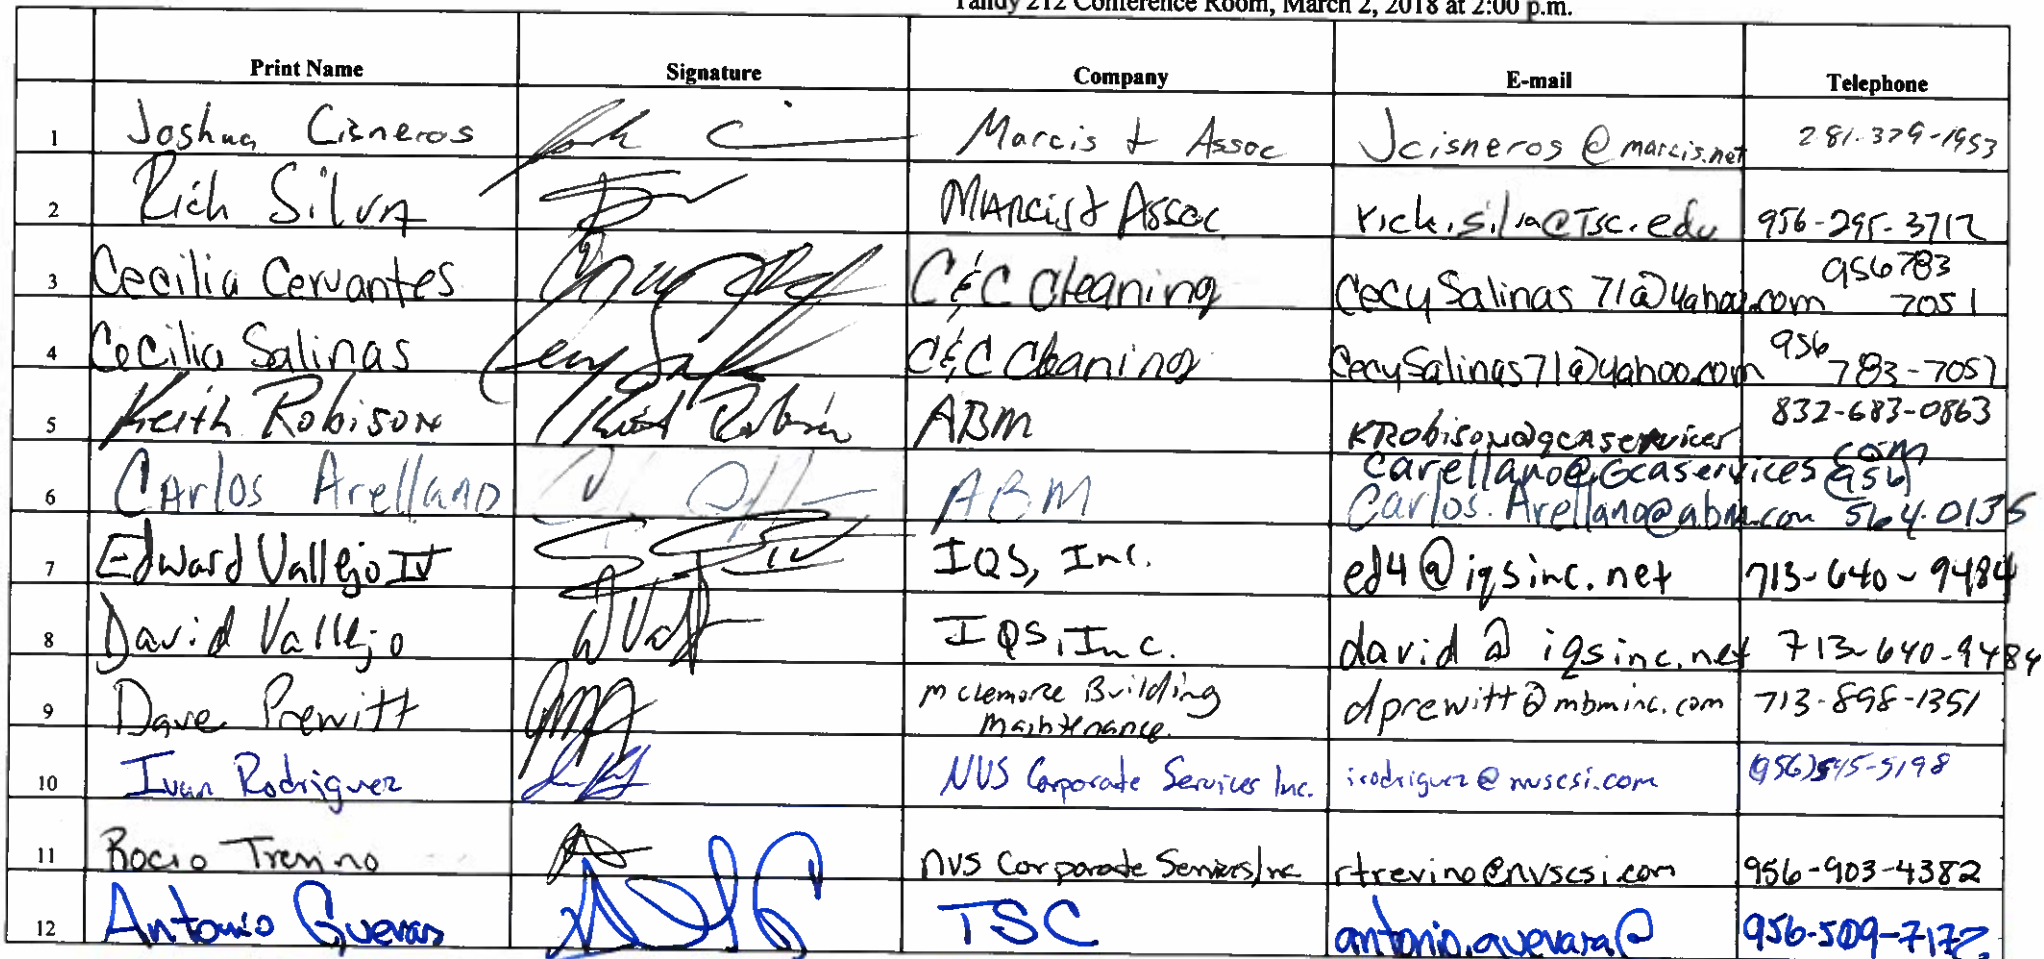 Tandy 212 Conference Room, March 2, 2018 at 2:00 p.m.
Print Name Signature Company E-mail Telephone
1 Joshua Cisneros Marcis & Assoc Jcisneros@marcis.net 281-379-1953
2 Rich Silva Marcis & Assoc rick.silva@tsc.edu 956-295-3712
3 Cecilia Cervantes C&C Cleaning CecySalinas71@yahoo.com 956 783 7051
4 Cecilia Salinas C&C Cleaning CecySalinas71@yahoo.com 956 783-7051
5 Keith Robison Keith Robison ABM KRobison@gcaservices com 832-683-0863
6 Carlos Arellano ABM carellano@Gcaservices Carlos.Arellano@abm.com (956) 564-0135
7 Edward Vallejo IV IQS, Inc. ed4@iqsinc.net 713-640-9484
8 David Vallejo IQS, Inc. david@iqsinc.net 713-640-9484
9 Dave Prewitt McLemore Building Maintenance dprewitt@mbminc.com 713-898-1351
10 Ivan Rodriguez NVS Corporate Services Inc. irodriguez@nvscsi.com (956)545-5198
11 Rocio Trevino NVS Corporate Services Inc rtrevino@nvscsi.com 956-903-4382
12 Antonio Guevara TSC antonio.guevara@ 956-509-7172